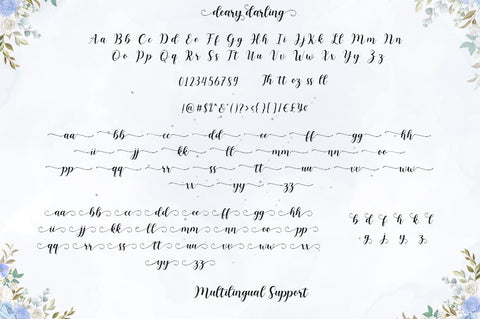 deary darling
Aa Bb Cc Dd Ee Ff Gg Hh Ii JjKk Ll Mm Nn
Oo Pp Qq Rr Ss Tt Uu Vv Ww Xx Yy Zz
0123456789 Th tt oz ss ll
!@#$%^&*()?><{}[]/€£¥¢
aa bb cc dd ee ff gg hh
ii jj kk ll mm nn oo
pp qq rr ss tt uu vv ww
xx yy zz
aa bb cc dd ee ff gg hh
ii jj kk ll mm nn oo pp
qq rr ss tt uu vv ww xx
yy zz
b d f h k l
g j y z
Multilingual Support